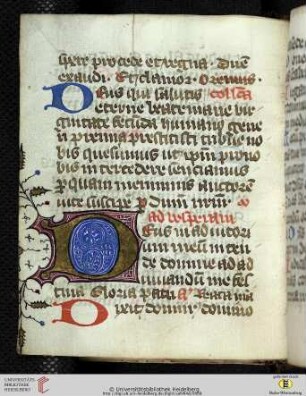 spere procede et regna · Dn̄e
exaudi · Et clamor · Oremus ·
Deus qui salutis collcā
eterne beate marie vir
ginitate fecūda humano gene
ri premia prestitisti tribue no
bis quesumus ut ipsam pro no
bis intercedere senciamus
per quam meruimus auctorē
vite suscipe
ad vesperam
Deus in adiutori
um meum in ten
de domine ad ad
iuvandū me fes
tina Gloria patri a Beata ma
Dixit dominus domino
UNIVERSITÄTS-
BIBLIOTHEK
HEIDELBERG
© Universitätsbibliothek Heidelberg
Baden-Württemberg